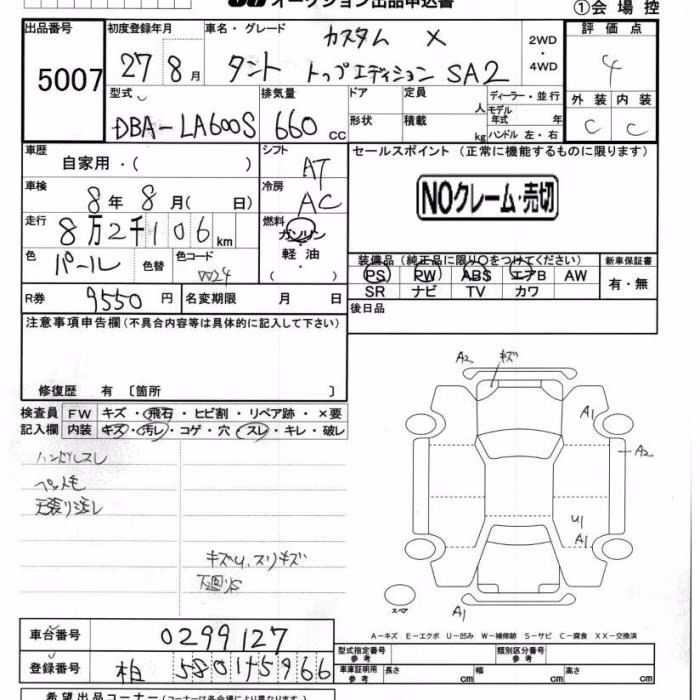 オークション出品申込書
①会場控
出品番号 初度登録年月 車名・グレード カスタム X 2WD ・ 4WD 評価点
5007 27年 8月 タント トップエディション SA2 4
型式 排気量 ドア 定員 人 ディーラー・並行 外装 内装
DBA-LA600S 660 cc 形状 積載 kg モデル年式 年 ハンドル 左・右 C C
車歴 自家用・( ) シフト AT セールスポイント (正常に機能するものに限ります)
車検 8年 8月( 日) 冷房 AC NOクレーム・売切
走行 8万2千106km 燃料 ガソリン
・軽油 ・( )
色 パール 色替 色コード W24
装備品 (純正品に限り○をつけてください) 新車保証書
PS PW ABS エアB AW 有・無
SR ナビ TV カワ
R券 9550円 名変期限 月 日 後日品
注意事項申告欄(不具合内容等は具体的に記入して下さい)
修復歴 有 〔箇所 〕
検査員記入欄 FW キズ・飛石・ヒビ割・リペア跡・×要
内装 キズ・汚レ・コゲ・穴・スレ・キレ・破レ
ハンドルスレ
天張リ汚レ
キズU.スリキズ
下回リS
A2 キズ
A1
A2
U1
A1
スペア
A1
A-キズ E-エクボ U-凹み W-補修跡 S-サビ C-腐食 XX-交換済
車台番号 0299127
登録番号 柏 580 い 5966
型式指定番号 参考 類別区分番号 参考
車庫証明用 参考 長さ cm 幅 cm 高さ cm
希望出品コーナー(コーナーは各会場により異なります)